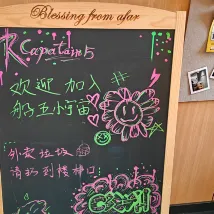 Blessing from afar
RCapatain5
欢迎 加入
船五小宇宙
外卖垃圾
请扔到楼梯口